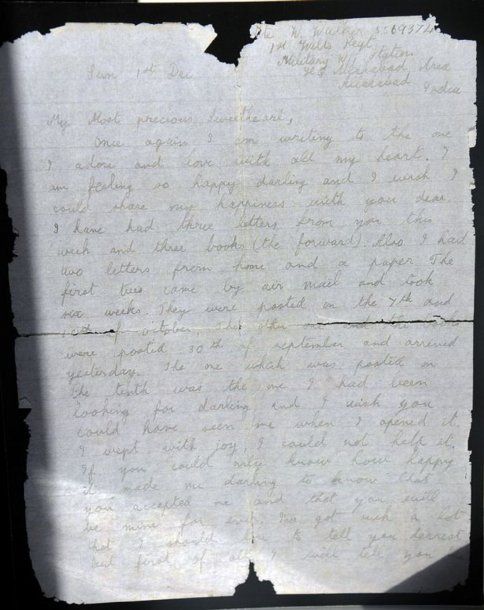 W. Walker 5569374
1st Wilts Regt
Military W/ Station
H.Q. Allahabad Area
Allahabad
India
Sun 1st Dec
My Most precious Sweetheart,
Once again I am writing to the one
I adore and love with all my heart. I
am feeling so happy darling and I wish I
could share my happiness with you dear.
I have had three letters from you this
week and three books (the forward). Also I had
two letters from home and a paper. The
first two came by air mail and took
six weeks. They were posted on the 7th and
10th of October. The other
were posted 30th of September and arrived
yesterday. The one which was posted on
the tenth was the one I had been
looking for darling and I wish you
could have seen me when I opened it.
I wept with joy, I could not help it.
If you could only know how happy
it made me darling to know that
you accepted me and that you will
be mine for ever. I've got such a lot
that I should like to tell you dearest
but first of all I will tell you